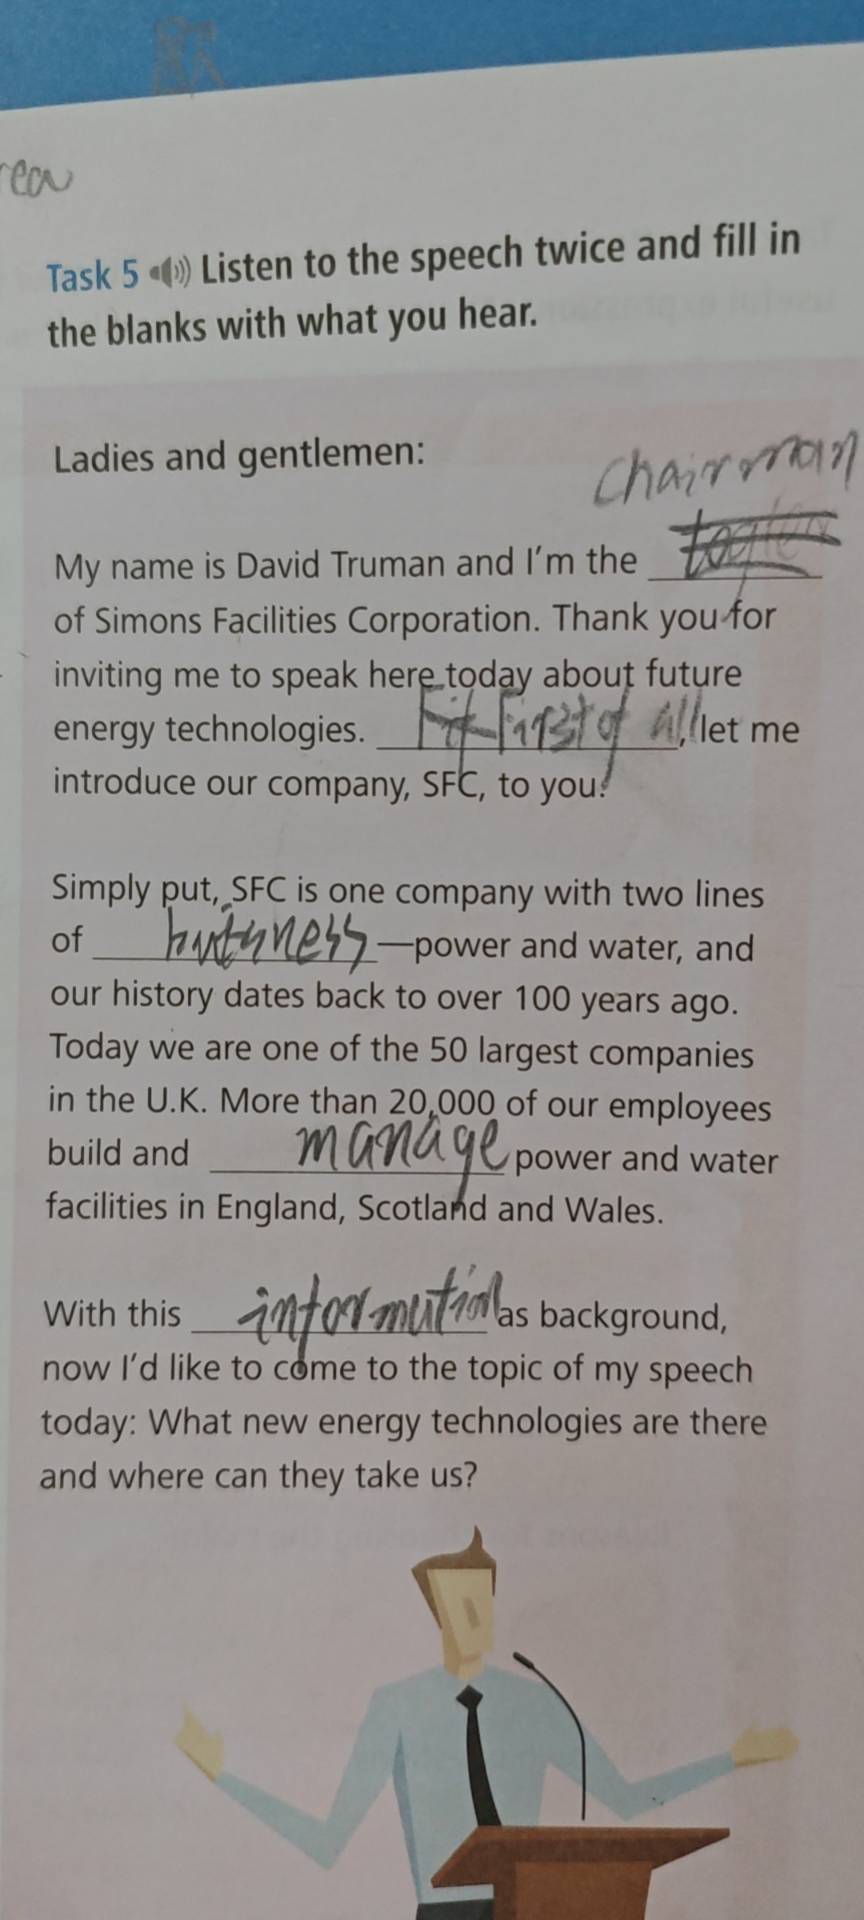 Task 5 Listen to the speech twice and fill in
the blanks with what you hear.
Ladies and gentlemen:
chairman
My name is David Truman and I'm the
of Simons Facilities Corporation. Thank you for
inviting me to speak here today about future
energy technologies. First of all, let me
introduce our company, SFC, to you.
Simply put, SFC is one company with two lines
of business—power and water, and
our history dates back to over 100 years ago.
Today we are one of the 50 largest companies
in the U.K. More than 20,000 of our employees
build and manage power and water
facilities in England, Scotland and Wales.
With this information as background,
now I'd like to come to the topic of my speech
today: What new energy technologies are there
and where can they take us?